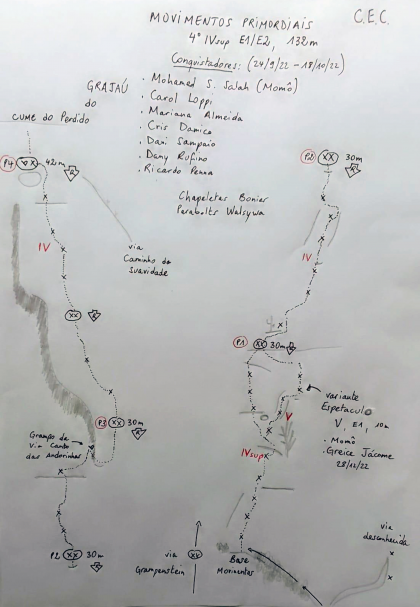 MOVIMENTOS PRIMORDIAIS
C.E.C.
4º IVsup E1/E2, 132m
Conquistadores: (24/9/22 – 18/10/22)
GRAJAÚ
do
. Mohamed S. Salah (Momô)
. Carol Loppi
. Mariana Almeida
. Cris Damico
. Dani Sampaio
. Dany Rufino
. Ricardo Penna
Chapeletas Bonier
Parabolts Walsywa
CUME do Perdido
P4 XX 42m
R
IV
via
Caminho da
Suavidade
XX R
P3 XX 30m
R
Grampo da
Via Canto
das Andorinhas
P2 XX 30m
R
P2 XX 30m
R
IV
P1 XX 30m
R
variante
Espetáculo
V, E1, 10m
. Momô
. Greice Jácome
28/12/22
V
IVsup
via
Grampenstein
XX
Base
Movimentos
via
desconhecida